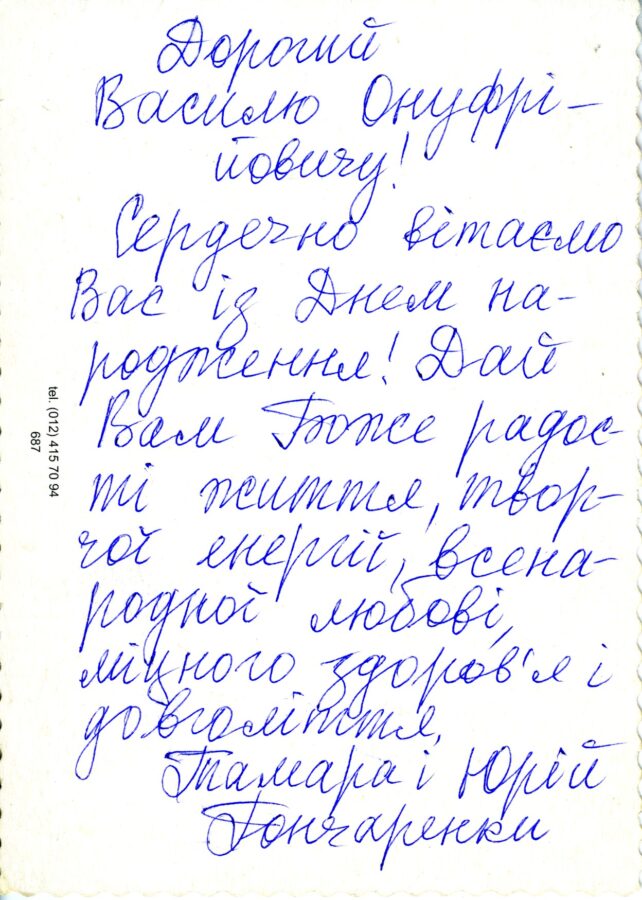 Дорогий
Василю Онуфрі-
йовичу!
Сердечно вітаємо
Вас із Днем на-
родження! Дай
Вам Боже радос-
ті життя, твор-
чої енергії, всена-
родної любові,
міцного здоров'я і
довголіття.
Тамара і Юрій
Гончаренки
tel. (012) 415 70 94
687